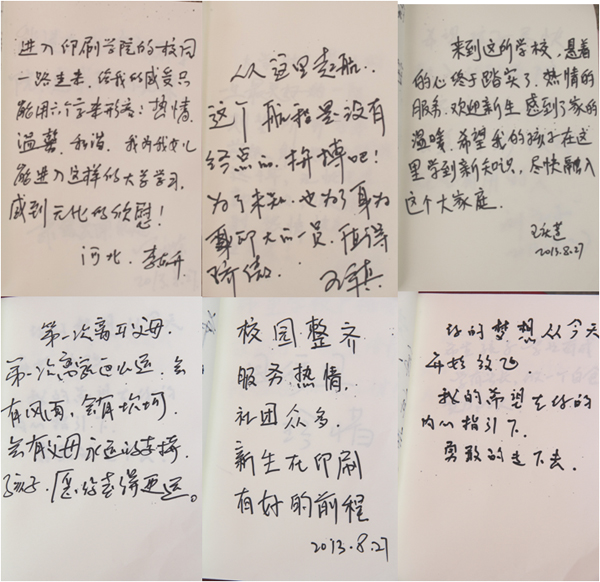 进入印刷学院的校园
一路走来,给我的感受只
能用六个字来形容:热情、
温馨、和谐。我为我女儿
能进入这样的大学学习,
感到无比的欣慰!
河北.李
从这里起航..
这个航程是没有
终点的.拼搏吧!
为了未来.也为了身为
印大的一员.值得
骄傲.
王
来到这所学校.悬着
的心终于踏实了.热情的
服务.欢迎新生感到了家的
温暖.希望我的孩子在这
里学到新知识,尽快融入
这个大家庭.
2013.8.27
第一次离开父母.
第一次离家这么远.会
有风雨,会有坎坷.
会有父母永远的支持.
孩子.愿你走得更远。
校园整齐
服务热情.
社团众多.
新生在印刷
有好的前程
2013.8.27
你的梦想从今天
开始放飞.
我的希望在你的
内心指引下.
勇敢的走下去.